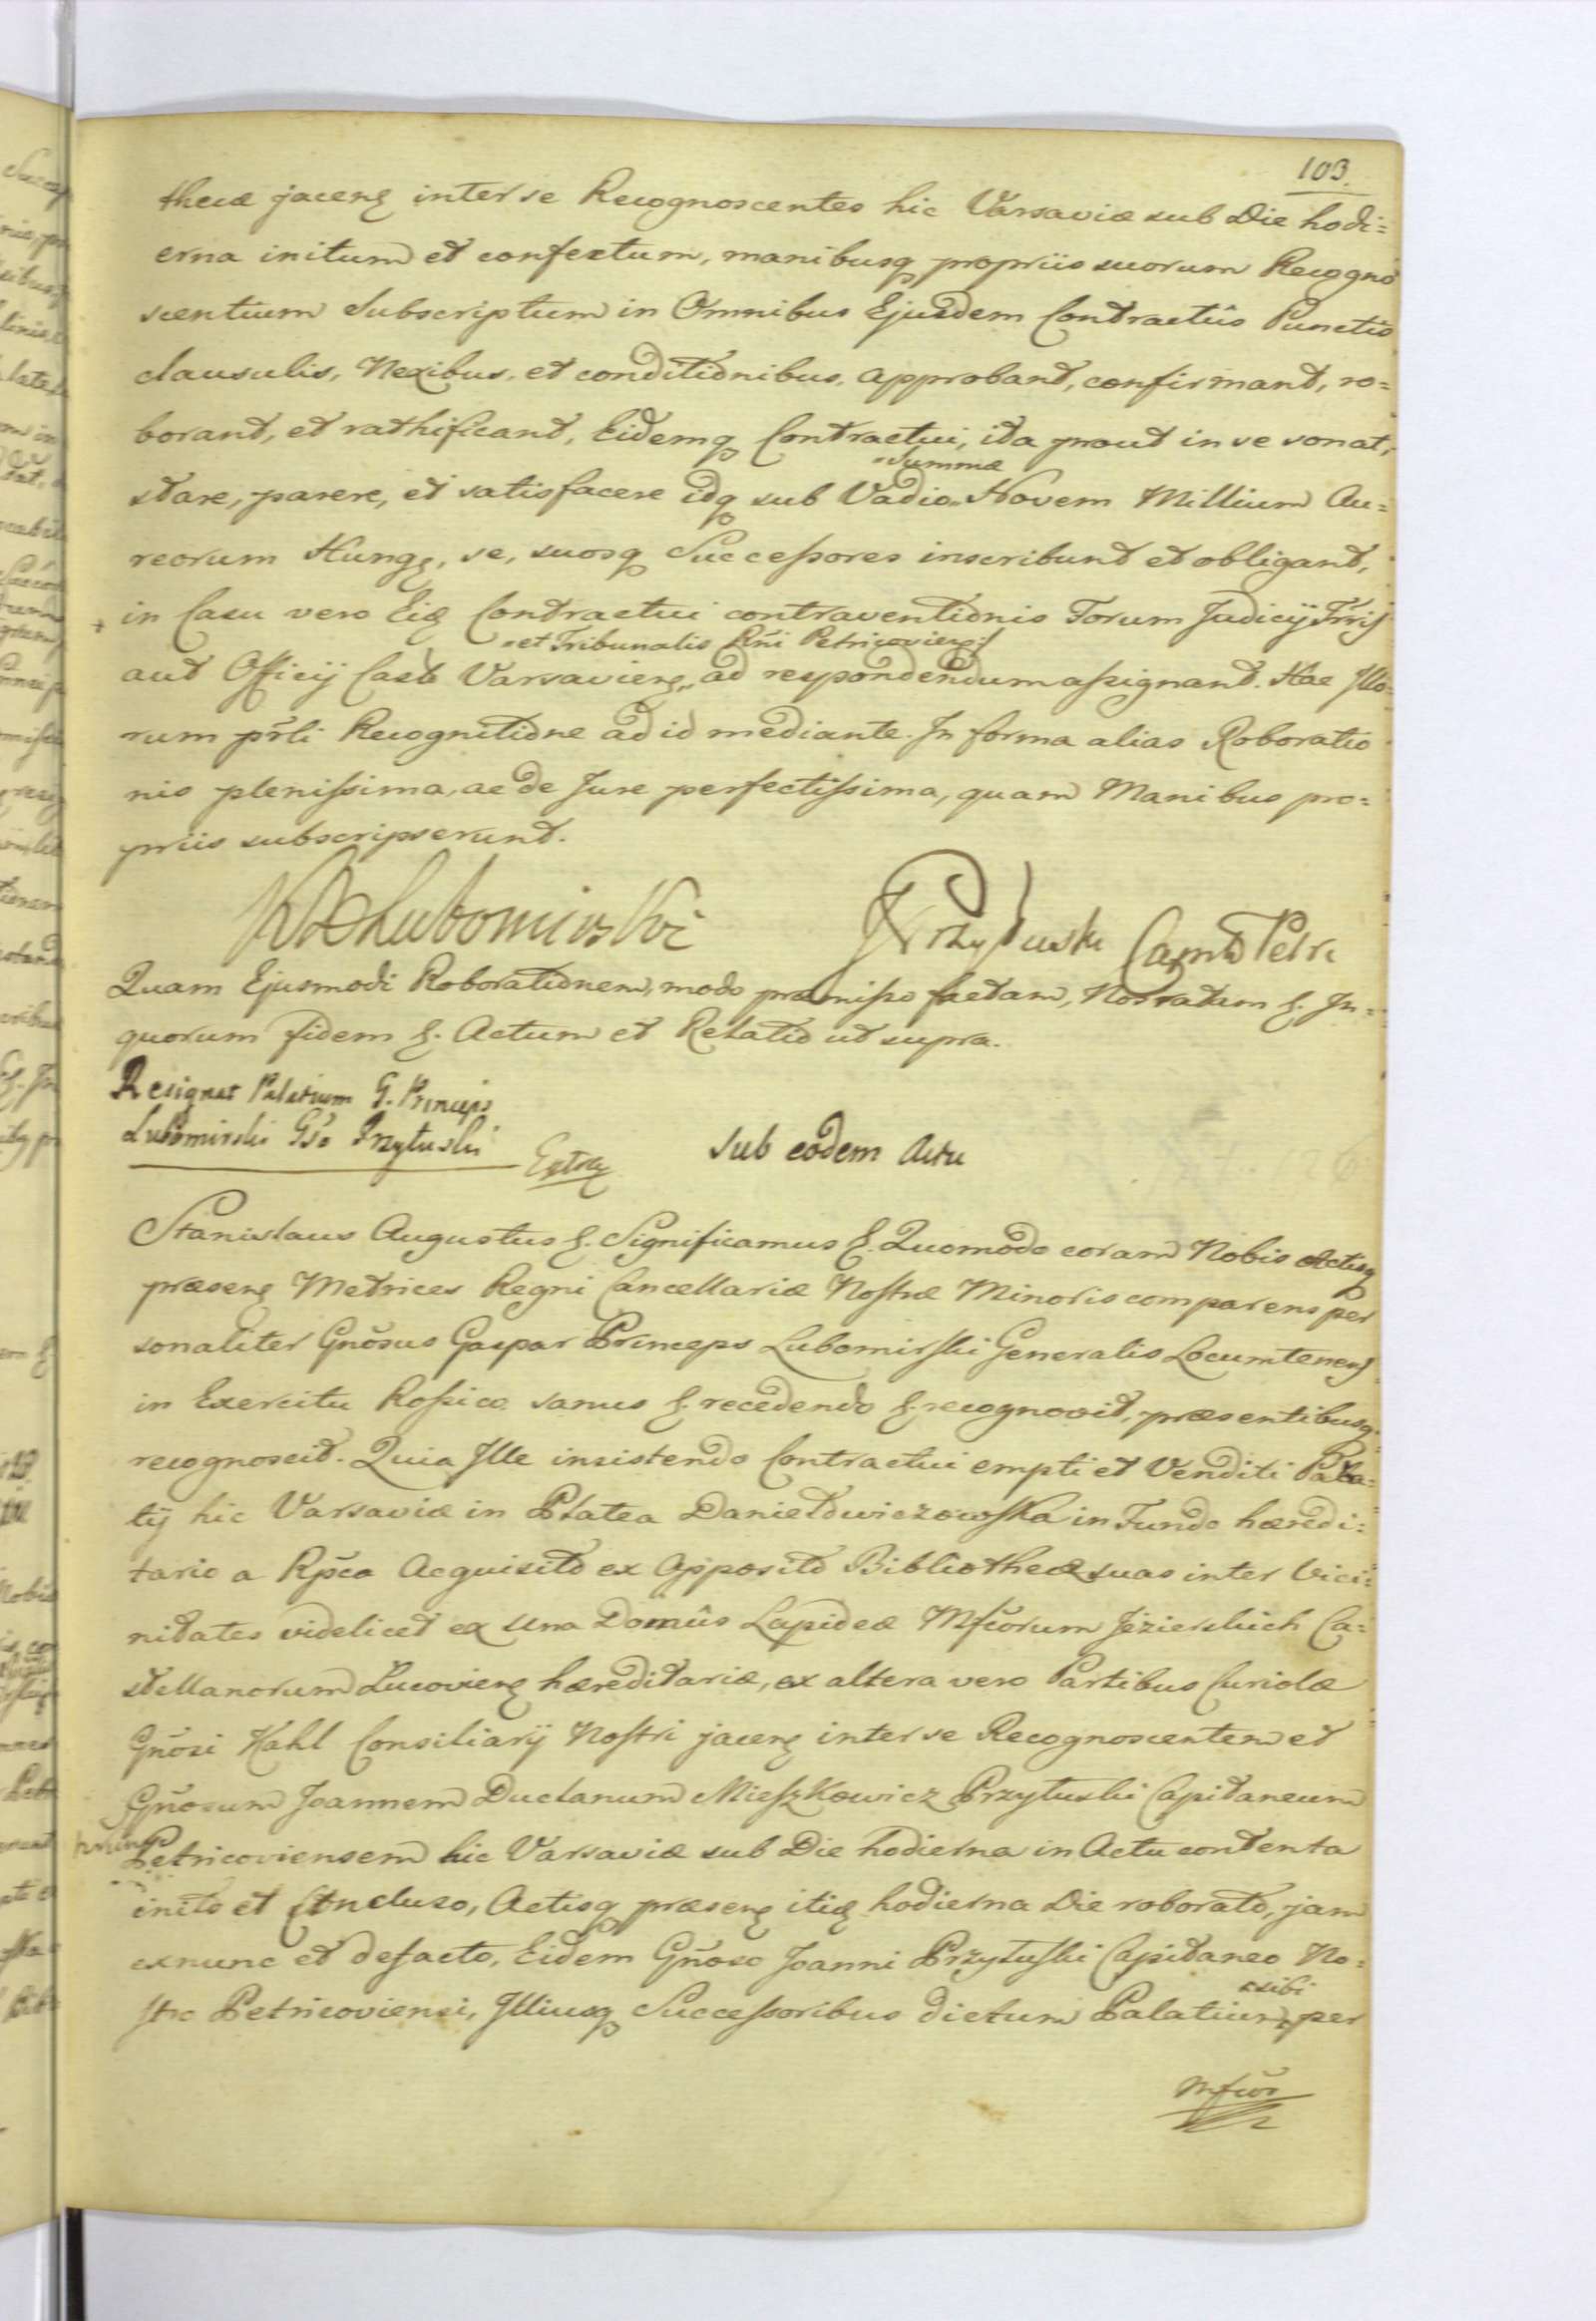 103.
thecæ jacenꝭ inter se Recognoscentes hic Varsaviæ sub Die hodi=
erna initum et confectum, manibusꝗ propriis suorum Recogno
scentium Subscriptum in Omnibus Ejusdem Contractûs Punctis
clausulis, Nexibus, et conditionibus, approbant, confirmant, ro=
borant, et rathificant, Eidemꝗ Contractui, ita prout in se sonat,
Summæ
stare, parere, et satisfacere idꝗ sub Vadio Novem Millium Au=
reorum Hungꝭ, se, suosꝗ Successores inscribunt et obligant,
in Casu vero Eiꝗ Contractui contraventionis Forum Judicij Trris
et Tribunalis Rñi Petricovienꝭ
aut Officij Castr Varsavienꝭ, ad respondendum assignant. Hac Illo=
rum prñti Recognitione ad id mediante. In forma alias Roboratio
nis plenissima, ac de Jure perfectissima, quam Manibus pro=
priis subscripserunt.
Lubomirski
JPrzyłuski Capnt Petri
Quam Ejusmodi Roborationem, modo præmisso factam, Nos ratam &. In=
quorum fidem &. Actum et Relatio ut supra.
Resignat Palatium G. Princeps
Lubomirski Gso Przyłuski
Extrꝭ
Sub eodem Actu
Stanislaus Augustus &. Significamus &. Quomodo coram Nobis Actisꝗ
præsenꝭ Metrices Regni Cancellariæ Nostræ Minoris comparens per
sonaliter Gñosus Gaspar Princeps Lubomirski Generalis Locumtenens
in Exercitu Rossico sanus &. recedendo &. recognovit, præsentibusꝗ
recognoscit. Quia Ille insistendo Contractui empti et Venditi Pala=
tij hic Varsaviæ in Platea Danielowiczowska in Fundo hæredi=
tario a Rpca Acquisito ex Opposito Bibliothecæ suas inter Vici=
nitates videlicet ex una Domûs Lapideæ Mfcorum Jezierskich Ca=
stellanorum Lucovienꝭ hæreditariæ, ex altera vero Partibus Curiolæ
Gñosi Kahl Consiliarij Nostri jacenꝭ inter se Recognoscentem et
Gñosum Joannem Duclanum Mieszkowicz Przyłuski Capitaneum
Petricoviensem hic Varsaviæ sub Die hodierna in Actu contenta
inito et Concluso, Actisꝗ præsenꝭ itiꝗ hodierna Die roborato, jam
exnunc et defacto, Eidem Gñoso Joanni Przyłuski Capitaneo No=
sibi
stro Petricoviensi, Illiusꝗ Successoribus dictum Palatium, per
Mfcos